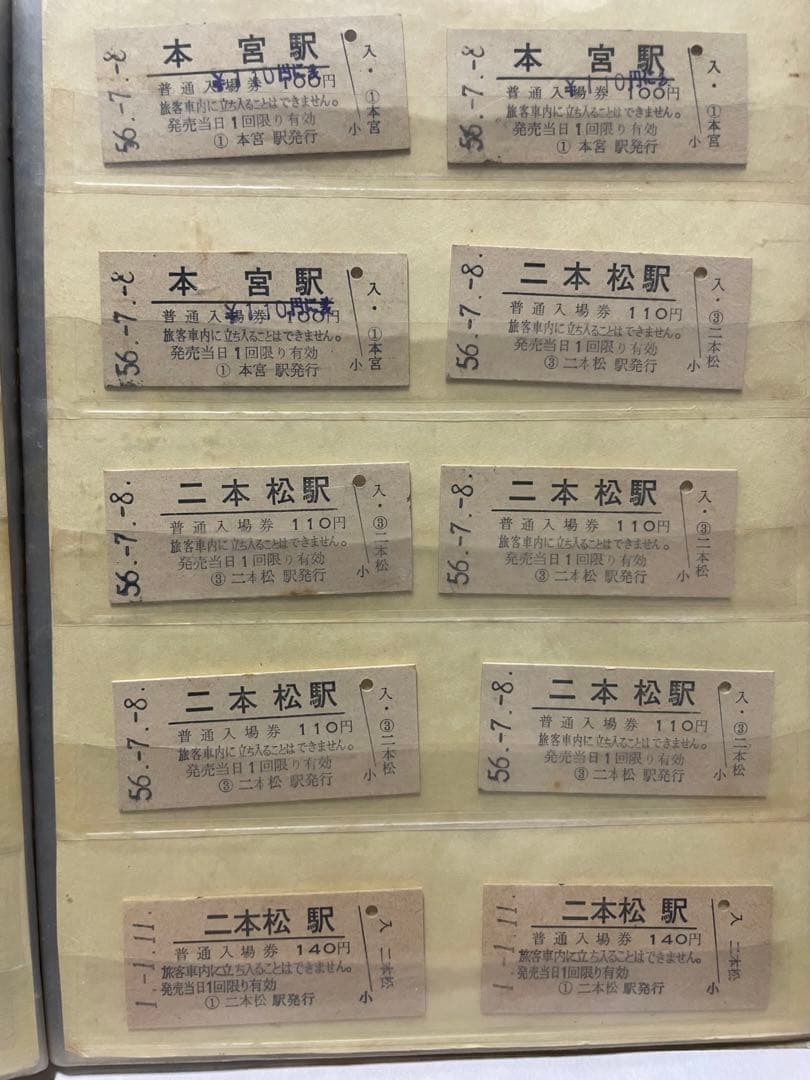 本宮駅
¥110円に変
普通入場券 100円
旅客車内に立ち入ることはできません。
発売当日1回限り有効
① 本宮 駅発行
56.-7.-8
入・①本宮
小
本宮駅
¥110円に変
普通入場券 100円
旅客車内に立ち入ることはできません。
発売当日1回限り有効
① 本宮 駅発行
56.-7.-8
入・①本宮
小
本宮駅
¥110円に変
普通入場券 100円
旅客車内に立ち入ることはできません。
発売当日1回限り有効
① 本宮 駅発行
56.-7.-8
入・①本宮
小
二本松駅
普通入場券 110円
旅客車内に立ち入ることはできません。
発売当日1回限り有効
③ 二本松 駅発行
56.-7.-8.
入・③二本松
小
二本松駅
普通入場券 110円
旅客車内に立ち入ることはできません。
発売当日1回限り有効
③ 二本松 駅発行
56.-7.-8.
入・③二本松
小
二本松駅
普通入場券 110円
旅客車内に立ち入ることはできません。
発売当日1回限り有効
③ 二本松 駅発行
56.-7.-8.
入・③二本松
小
二本松駅
普通入場券 110円
旅客車内に立ち入ることはできません。
発売当日1回限り有効
③ 二本松 駅発行
56.-7.-8.
入・③二本松
小
二本松駅
普通入場券 110円
旅客車内に立ち入ることはできません。
発売当日1回限り有効
③ 二本松 駅発行
56.-7.-8.
入・③二本松
小
二本松駅
普通入場券 140円
旅客車内に立ち入ることはできません。
発売当日1回限り有効
① 二本松 駅発行
1.-1.11.
入 二本松
小
二本松駅
普通入場券 140円
旅客車内に立ち入ることはできません。
発売当日1回限り有効
① 二本松 駅発行
1.-1.11.
入 二本松
小